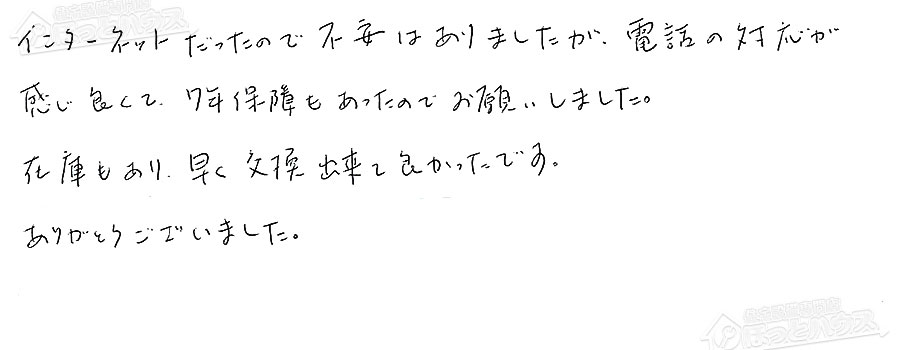 インターネットだったので不安はありましたが、電話の対応が
感じ良くて、7年保障もあったのでお願いしました。
在庫もあり、早く交換出来て良かったです。
ありがとうございました。
住宅設備専門店
ほっとハウス